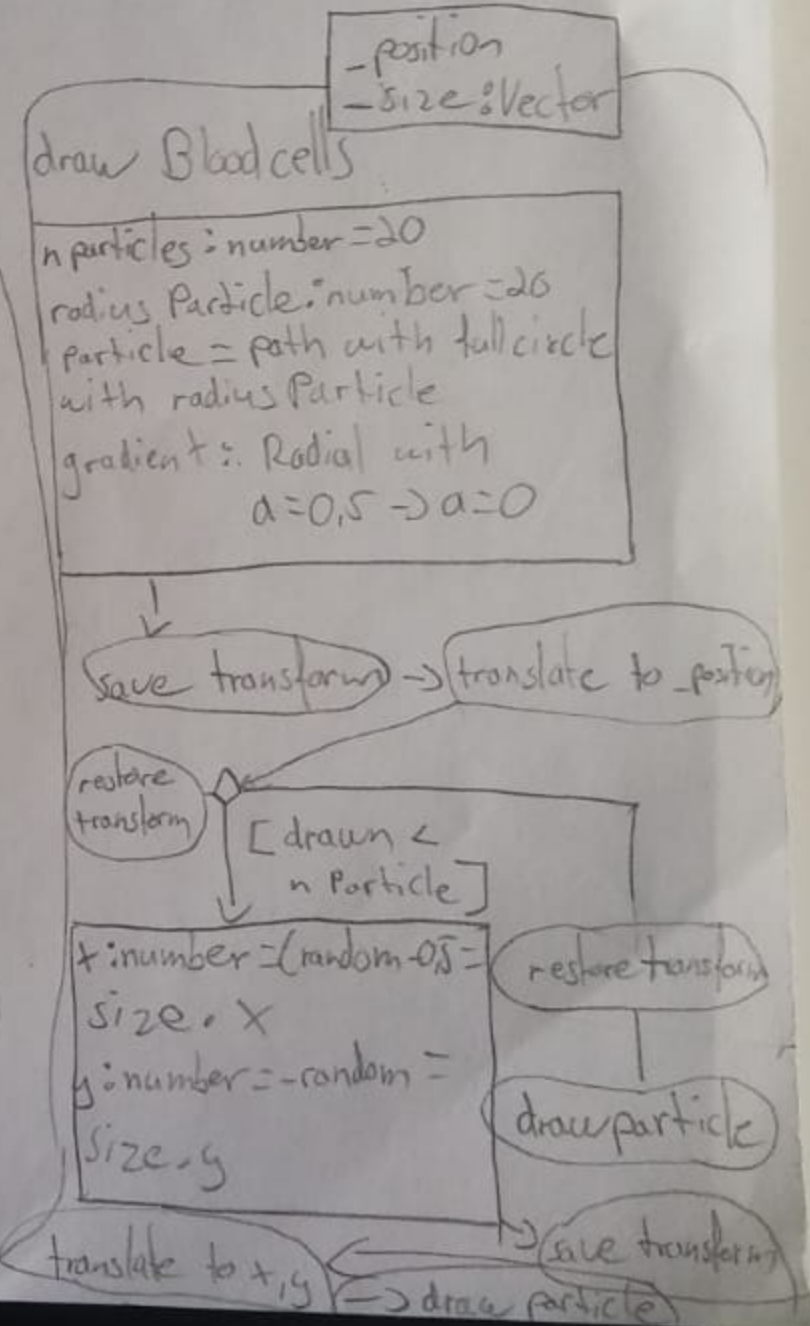 _position
_size:Vector
draw Bloodcells
nparticles:number=20
radius Particle:number=20
particle = path with full circle
with radius Particle
gradient: Radial with
a=0,5 -> a=0
save transform -> translate to _position
restore
transform
[drawn <
n Particle]
x:number=(random-0,5=
size.x
y:number=-random=
size.y
restore transform
draw particle
save transform
translate to x,y
-> draw particle